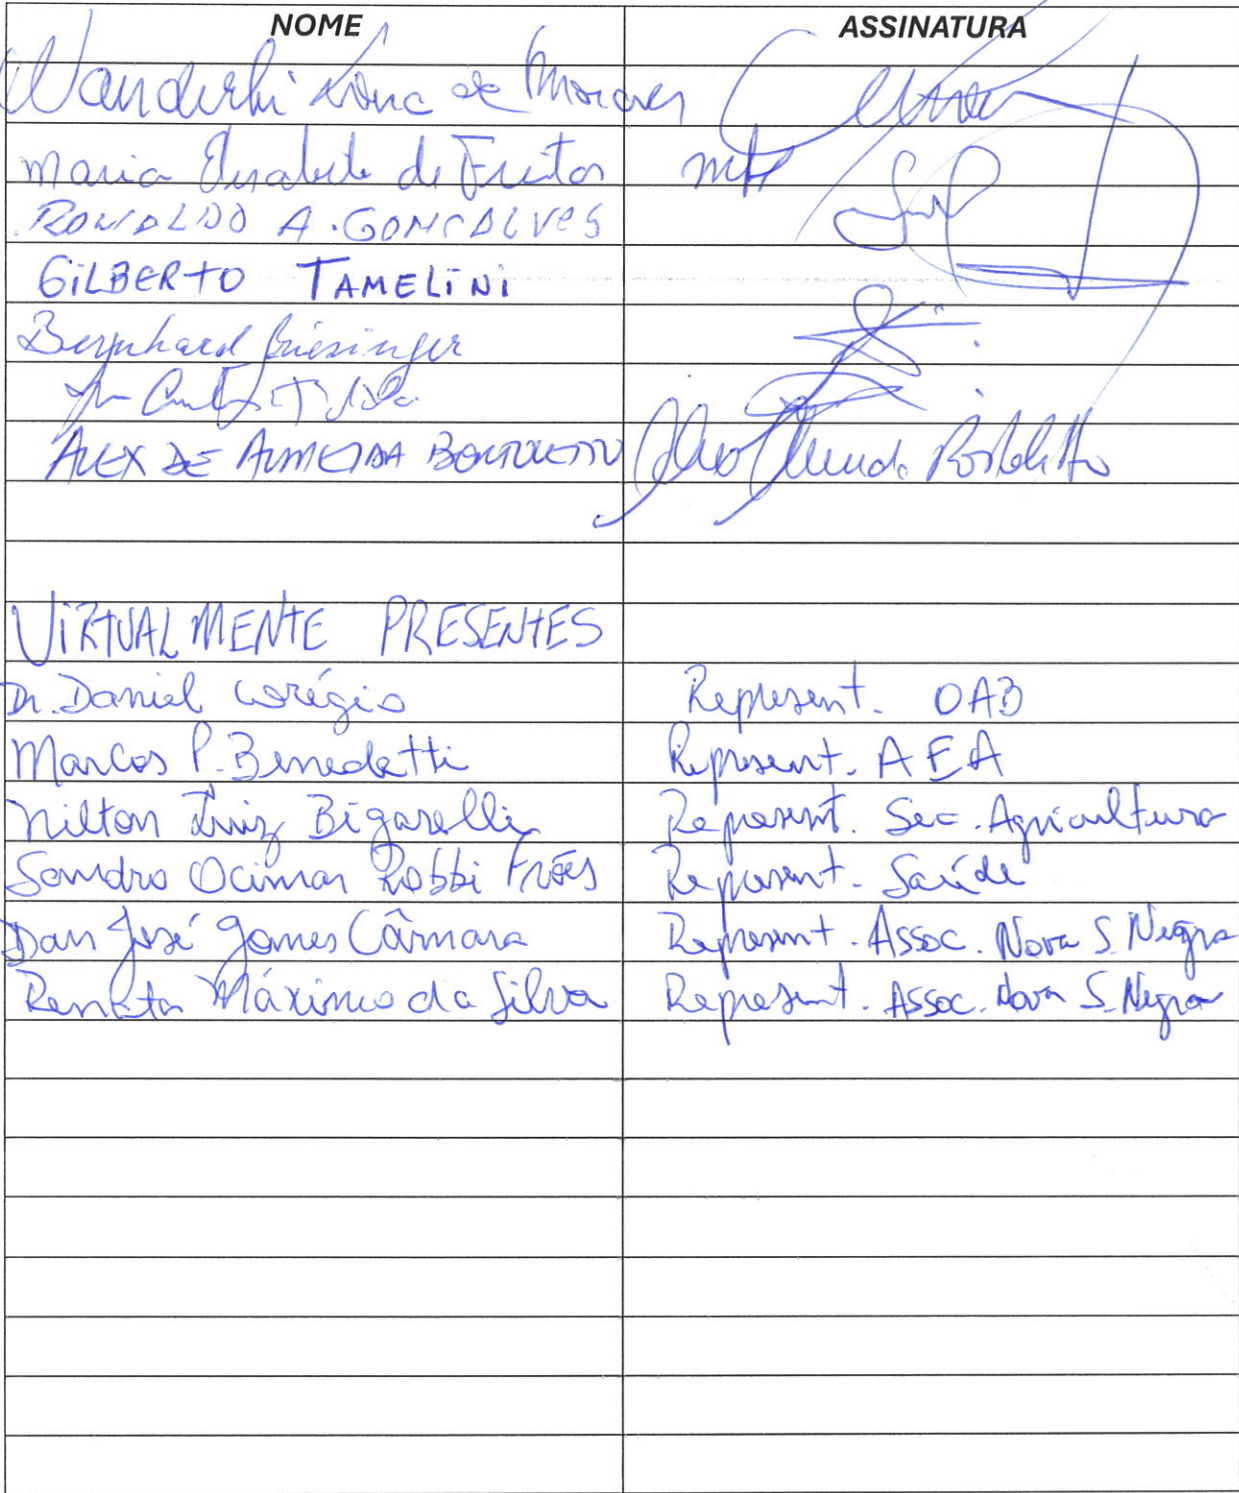 NOME ASSINATURA
Wanderlei de Moraes
Maria Elisabete de Freitas
RONALDO A. GONCALVES
GILBERTO TAMELINI
Bernhard Griesinger
ALEX DE ALMEIDA BORTOLETTO
VIRTUALMENTE PRESENTES
Dr. Daniel Corégio Represent. OAB
Marcos P. Benedetti Represent. AEA
Nilton Luiz Bigarelli Represent. Sec. Agricultura
Sandro Ocimar Robbi Fróes Represent. Saúde
Dan José Gomes Câmara Represent. Assoc. Nova S. Negra
Renata Máximo da Silva Represent. Assoc. Nova S. Negra